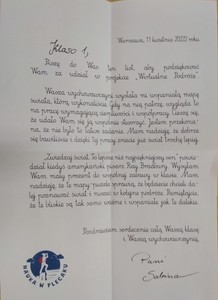 Warszawa, 11 kwietnia 2022 roku
Klaso 1,
Piszę do Was ten list, aby podziękować
Wam za udział w projekcie „Wirtualne Podróże”.
Wasza wychowawczyni wysłała mi wspaniałą mapę
świata, którą wykonaliście. Gdy na nią patrzę, wygląda to
na pracę wymagającą cierpliwości i współpracy. Cieszę się,
że udało Wam się ją wspólnie stworzyć. Jestem przekona-
na, że nie było to łatwe zadanie. Mam nadzieję, że dobrze
się bawiliście i dzięki tej pracy znacie już świat trochę lepiej.
„Zwiedzaj świat. To lepsze niż najpiękniejszy sen” powie-
dział kiedyś amerykański pisarz Ray Bradbury. Wysyłam
Wam mały prezent do wspólnej zabawy w klasie. Mam
nadzieję, że te mapy puzzle sprawią, że będziecie chcieli da-
lej poznawać świat i ruszać w kolejne podróże. Pamiętajcie,
że te bliskie są tak samo ważne i wspaniałe jak te dalekie.
Pozdrawiam serdecznie całą Waszą klasę
i Waszą wychowawczynię,
Pani
Sabina
NAUKA W PLECAKU